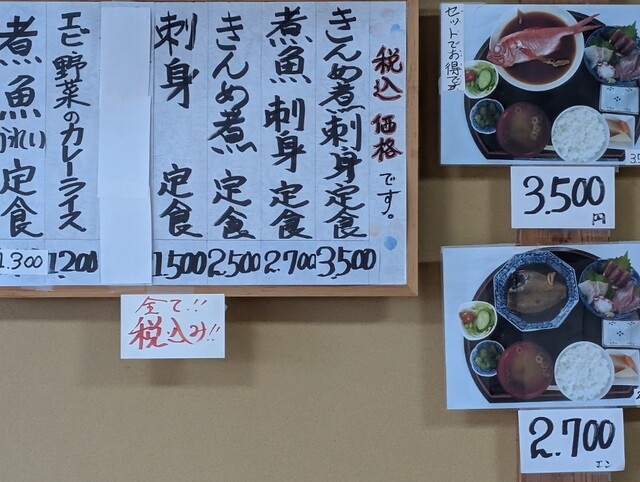 税込価格です。
きんめ煮刺身定食 3,500
煮魚刺身定食 2,700
きんめ煮定食 2,500
刺身定食 1,500
エビ・野菜のカレーライス 1,200
煮魚(かれい)定食 1,300
全て!!
税込み!!
セットでお得です
3,500
円
2,700
エン